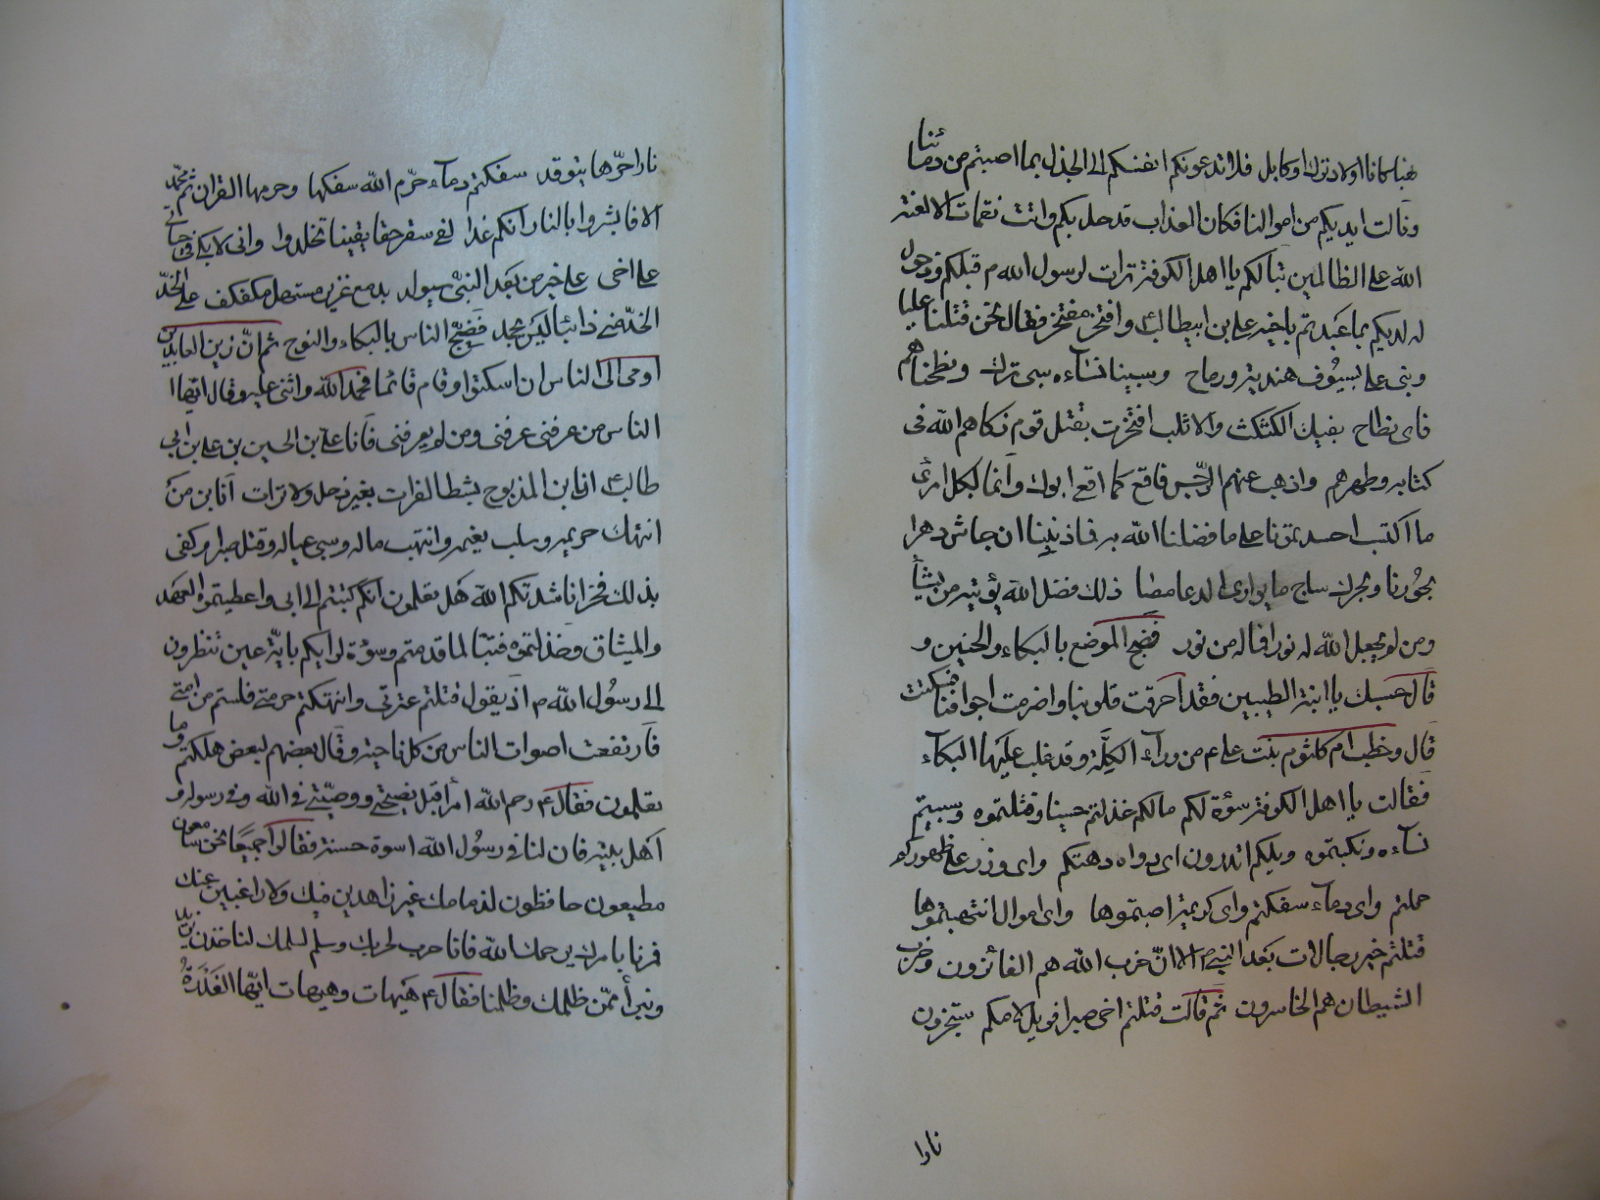 نهبا كانا اولاد ترك او كابل فلا تدعونكم انفسكم الى الجذل بما اصبتم من دمائنا
ونالت ايديكم من اموالنا فكان العذاب قد حل بكم واتت نقمات الا لعنة
الله على الظالمين تبا لكم يا اهل الكوفة ترات لرسول الله ص قبلكم وذحول
له لديكم بما غدرتم باخيه على بن ابيطالب ع وافتخر مفتخر فقال نحن قتلنا عليا
وبنى على بسيوف هندية ورماح وسبينا نساءه سبى ترك ونطحناهم
فاى نطاح بفيك الكثكث والاثلب افتخرت بقتل قوم زكاهم الله فى
كتابه وطهرهم واذهب عنهم الرّجس فاقع كما اقعى ابوك وانما لكل امرئ
ما اكتسب احسدتمونا على ما فضلنا الله به فما ذنبنا ان جاش دهرا
بحورنا وبحرك ساج ما يوارى الدعامصا ذلك فضل الله يؤتيه من يشأ
ومن لم يجعل الله له نورا فما له من نور فضج الموضع بالبكاء والحنين و
قال حسبك يا ابنة الطيبين فقد احرقت قلوبنا واضرمت اجوافنا فسكتت
قال وخطب ام كلثوم بنت على ع من ورآء الكلّة وقد غلب عليها البكآء
فقالت يا اهل الكوفة سؤة لكم مالكم خذلتم حسينا وقتلتموه وسبيتم
نسآءه ونكبتموه ويلكم اتدرون اى دواه دهتكم واى وزر على ظهوركم
حملتم واى دمآء سفكتم واى كريمة اصبتموها واى اموال انتهبتموها
قتلتم خير رجالات بعد النبى ص الا انّ حزب الله هم الفائزون وحزب
الشيطان هم الخاسرون ثم قالت قتلتم اخى صبرا فويل لامكم ستجزون
نارا
نارا حرّها يتوقد سفكتم دمآء حرّم الله سفكها وحرمها القران ثم محمّد
الا فابشروا بالنار انكم غدا لفى سقر حقا يقينا تخلدوا وانى لابكى فى حياتى
على اخى على خير من بعد النبىّ سيولد بدمع غزير مستهل مكفكف على الخدّ
الخدّ منى ذائبا ليس يجمد فضجّ الناس بالبكاء والنوح ثم انّ زين العابدين
اومى الى الناس ان اسكتوا وقام قائما فحمد الله واثنى عليه وقال ايها
الناس من عرفنى عرفنى ومن لم يعرفنى فانا على بن الحسين بن على بن ابى
طالب ع انا بن المذبوح بشط الفرات بغير ذحل ولا ترات انا بن من
انتهك حريمه وسلب نعيمه وانتهب ماله وسبى عياله وقتل صبرا وكفى
بذلك فخرا ناشدتكم الله هل تعلمون انكم كتبتم الى ابى واعطيتموه العهد
والميثاق وخذلتموه فتبّا لما قدمتم وسوءة لرايكم بايّة عين تنظرون
الى رسول الله ص اذ يقول قتلتم عترتى وانتهكتم حرمتى فلستم من امتى
فارتفعت اصوات الناس من كل ناحية وقال بعضهم لبعض هلكتم وما
تعلمون فقال ع رحم الله امرأ قبل نصيحتى ووصيّتى فى الله وفى رسوله و
اهل بيته فان لنا فى رسول الله اسوة حسنة فقالوا جميعا نحن سامعون
مطيعون حافظون لذمامك غير زاهدين فيك ولا راغبين عنك
فمرنا بامرك يرحمك الله فانا حرب لحربك وسلم لسلمك لناخذن يزيد
ونبرأ ممّن ظلمك وظلمنا فقال ع هيهات وهيهات ايّها الغدرة